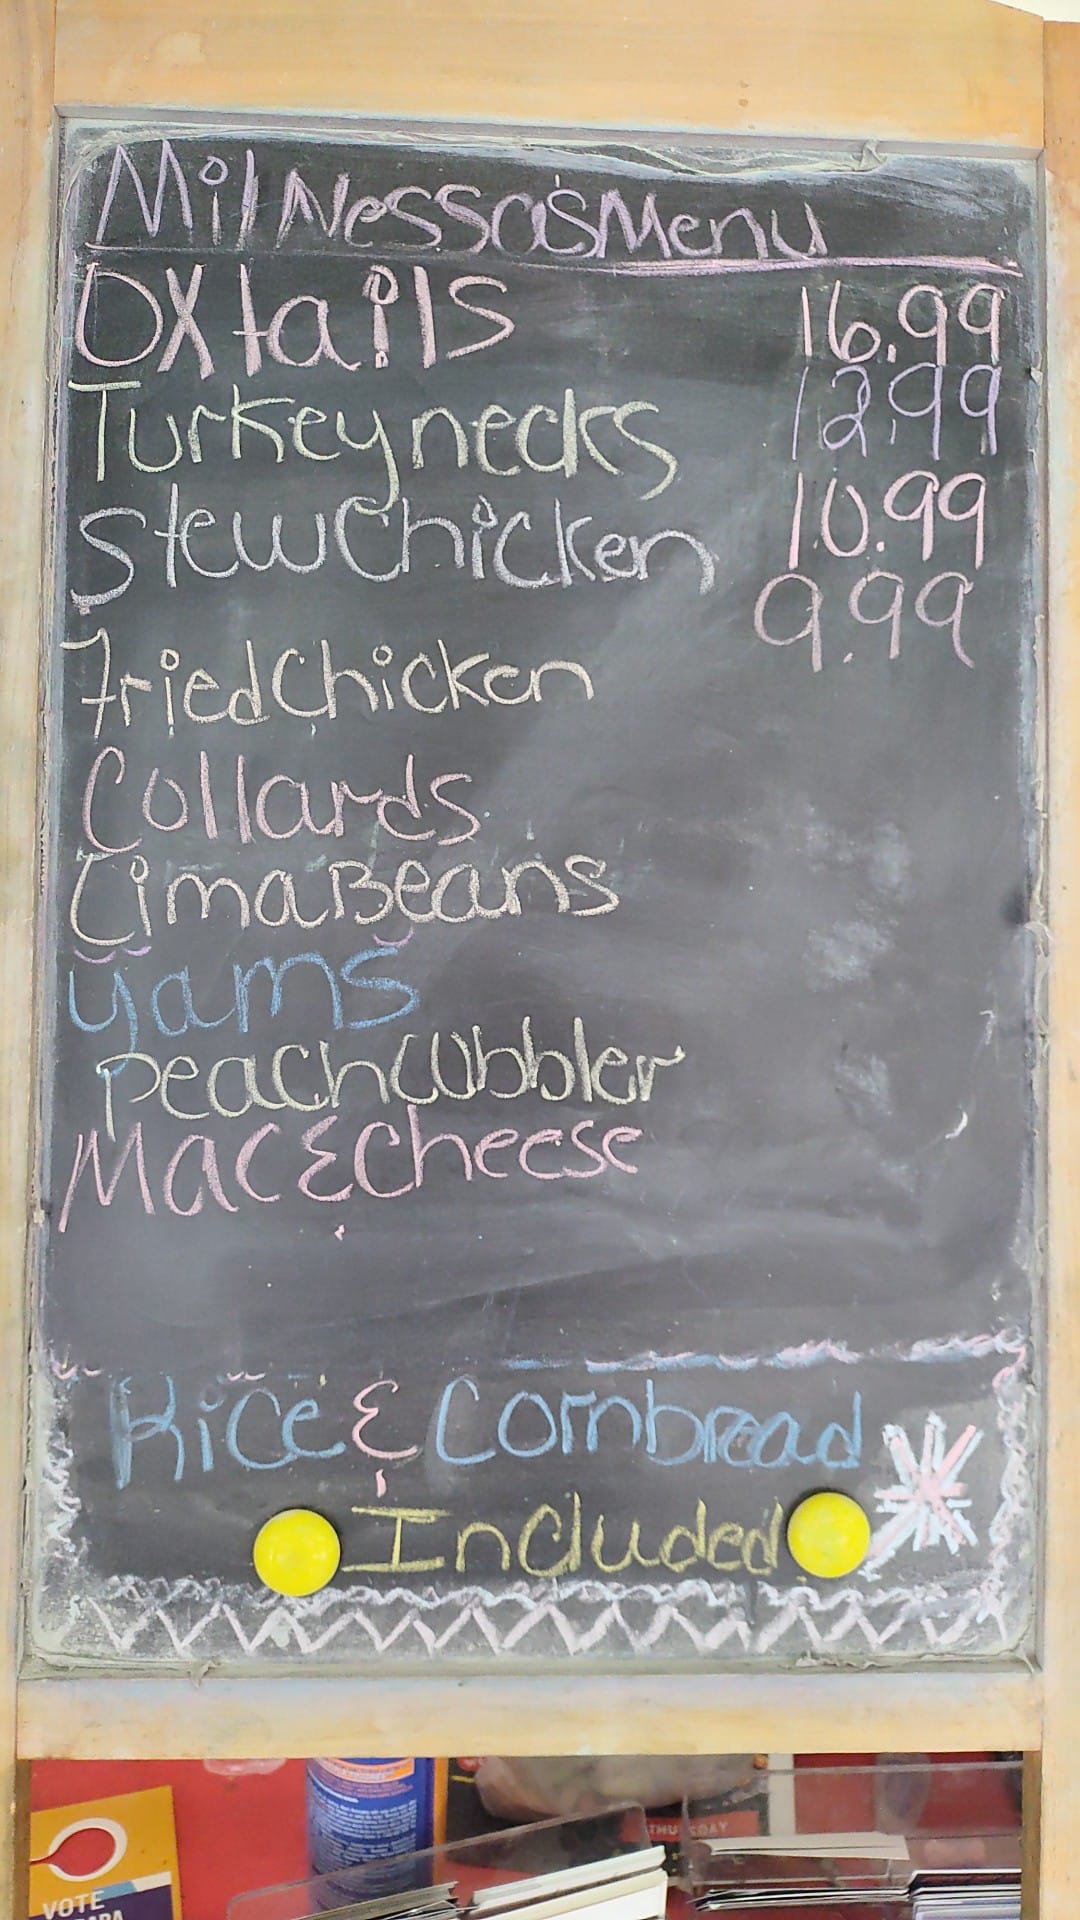 Mil Nessa's Menu
Oxtails 16.99
Turkey necks 12.99
Stew Chicken 10.99
9.99
Fried Chicken
Collards
Lima Beans
Yams
Peach Cobbler
Mac & Cheese
Rice & Cornbread
Included
THURSDAY
VOTE